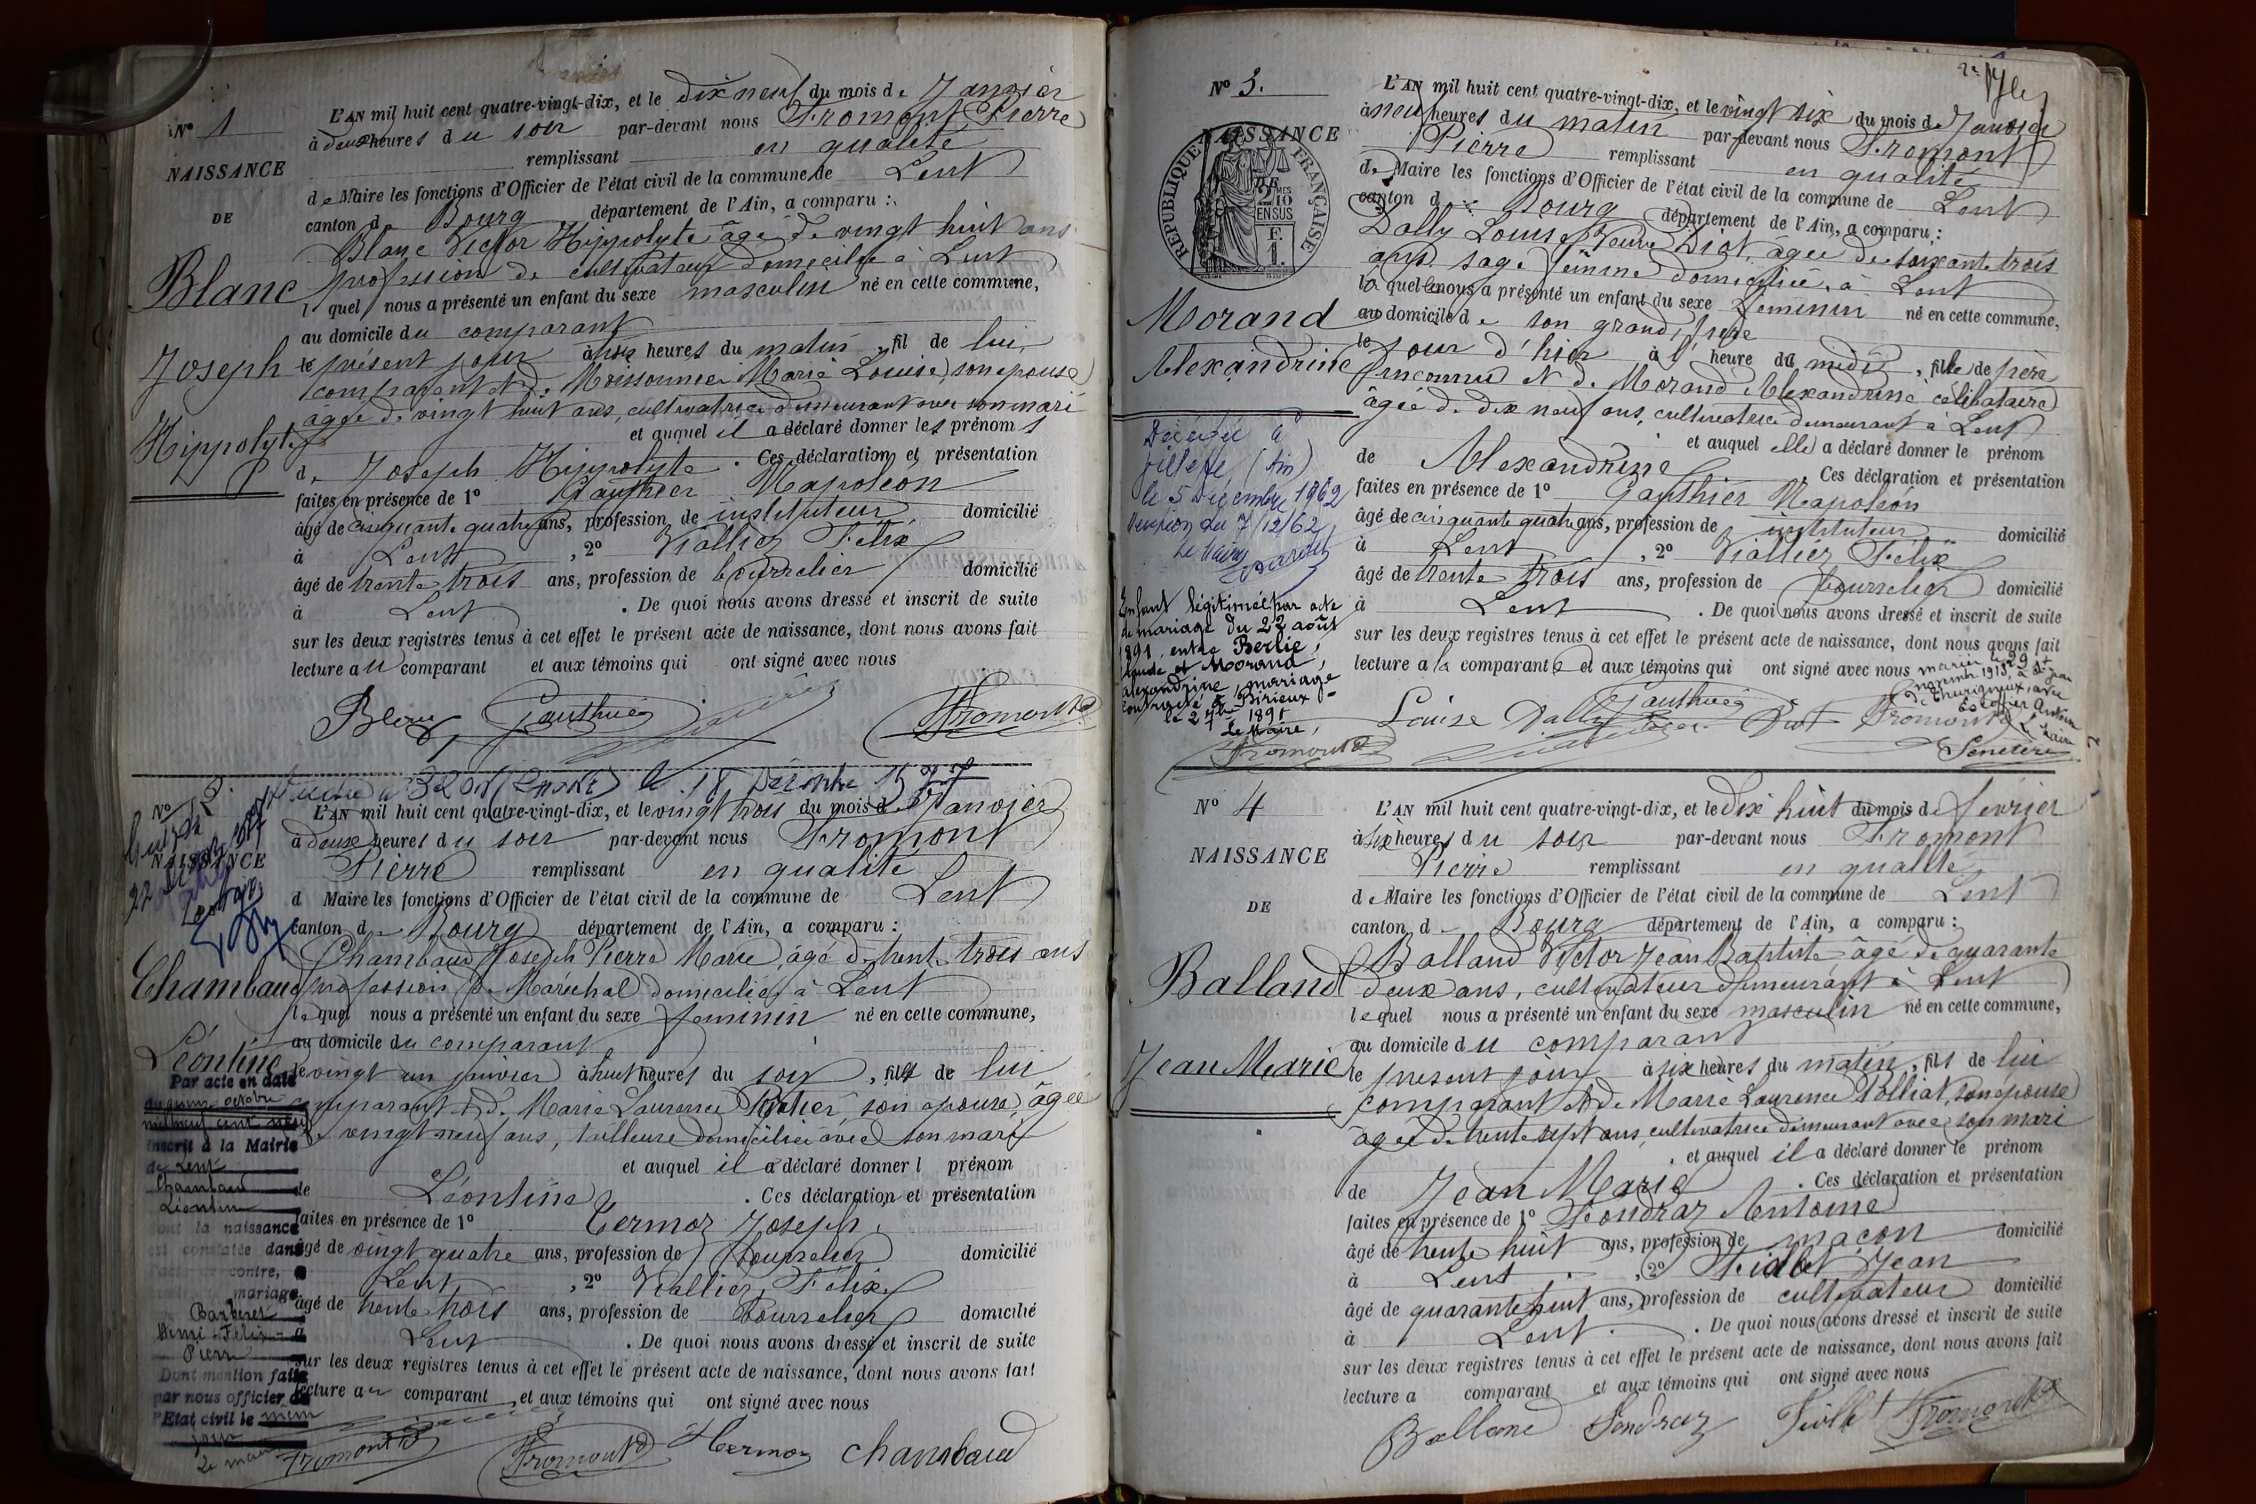 N° 1
NAISSANCE
DE
Blanc
Joseph
Hippolyte
L'AN mil huit cent quatre-vingt-dix, et le dix neuf du mois de Janvier
à deux heures du soir par-devant nous Fromont Pierre
remplissant en qualité
de Maire les fonctions d'Officier de l'état civil de la commune de Lent
canton de Bourg département de l'Ain, a comparu :
Blanc Victor Hippolyte âgé de vingt huit ans
profession de cultivateur domicilié à Lent
lequel nous a présenté un enfant du sexe masculin né en cette commune,
au domicile du comparant
le présent jour à heures du matin, fil de lui
comparant et de Moissonnier Marie Louise, son épouse
âgée de vingt huit ans, cultivatrice demeurant avec son mari
et auquel il a déclaré donner les prénoms
de Joseph Hippolyte. Ces déclaration et présentation
faites en présence de 1° Gauthier Napoléon
âgé de cinquante quatre ans, profession de instituteur domicilié
à Lent, 2° Viallier Félix
âgé de trente trois ans, profession de bourrelier domicilié
à Lent. De quoi nous avons dressé et inscrit de suite
sur les deux registres tenus à cet effet le présent acte de naissance, dont nous avons fait
lecture au comparant et aux témoins qui ont signé avec nous
Blanc Gauthier Fromont
le 18 Décembre
N° 2.
NAISSANCE
Chambaud
Léontine
L'AN mil huit cent quatre-vingt-dix, et le vingt trois du mois de Janvier
à deux heures du soir par-devant nous Fromont
Pierre remplissant en qualité
d Maire les fonctions d'Officier de l'état civil de la commune de Lent
canton de Bourg département de l'Ain, a comparu :
Chambaud Joseph Pierre Marie, âgé de trente trois ans
profession de Maréchal domicilié à Lent
lequel nous a présenté un enfant du sexe féminin né en cette commune,
au domicile du comparant
le vingt un janvier à huit heures du soir, fille de lui
comparant et de Marie Laurence son épouse, âgée
de vingt neuf ans, tailleuse domiciliée avec son mari
et auquel il a déclaré donner l prénom
de Léontine. Ces déclaration et présentation
faites en présence de 1° Hermoz Joseph
âgé de vingt quatre ans, profession de bourrelier domicilié
à Lent, 2° Viallier Félix
âgé de trente trois ans, profession de bourrelier domicilié
à Lent. De quoi nous avons dressé et inscrit de suite
sur les deux registres tenus à cet effet le présent acte de naissance, dont nous avons fait
lecture au comparant et aux témoins qui ont signé avec nous
Par acte en date
du octobre
mil neuf cent neuf
inscrit à la Mairie
de Lent
Chambaud
Léontine
dont la naissance
est constatée dans
l'acte ci-contre, a
mariage
Barberet
Félix
Pierre
Dont mention faite
par nous officier de
l'Etat civil le même
jour
Le maire Fromont
Fromont Hermoz Chambaud
N° 3.
NAISSANCE
RÉPUBLIQUE FRANÇAISE
2/10 EN SUS
F.
1.
Morand
Alexandrine
L'AN mil huit cent quatre-vingt-dix, et le vingt six du mois de Janvier
à neuf heures du matin par-devant nous Fromont
Pierre remplissant en qualité
de Maire les fonctions d'Officier de l'état civil de la commune de Lent
canton de Bourg département de l'Ain, a comparu :
Dally Louise Veuve Diot, âgée de soixante trois
ans sage femme domiciliée à Lent
laquelle nous a présenté un enfant du sexe féminin né en cette commune,
au domicile de son grand père
le jour d'hier à l'heure de midi, fille de père
inconnu et de Morand Alexandrine célibataire
âgée de dix neuf ans, cultivatrice demeurant à Lent
et auquel elle a déclaré donner le prénom
de Alexandrine Ces déclaration et présentation
faites en présence de 1° Gauthier Napoléon
âgé de cinquante quatre ans, profession de instituteur domicilié
à Lent, 2° Viallier Félix
âgé de trente trois ans, profession de bourrelier domicilié
à Lent. De quoi nous avons dressé et inscrit de suite
sur les deux registres tenus à cet effet le présent acte de naissance, dont nous avons fait
lecture a la comparante et aux témoins qui ont signé avec nous
Décédée à
(Ain)
le 5 Décembre 1962
du 7/12/62
Le Maire
Enfant légitimée par acte
de mariage du 22 août
1891, entre Berlie,
Claude et Morand,
Alexandrine, mariage
contracté à Birieux
1891
Le Maire,
Fromont
mariée le 29
novembre 1913, à St Jean
de Thurigneux, avec
Escoffier Antoine
Le Maire
Louise Dally Gauthier Diot Fromont
N° 4
NAISSANCE
DE
Balland
Jean Marie
L'AN mil huit cent quatre-vingt-dix, et le dix huit du mois de février
à six heures du soir par-devant nous Fromont
Pierre remplissant en qualité
de Maire les fonctions d'Officier de l'état civil de la commune de Lent
canton d Bourg département de l'Ain, a comparu :
Balland Victor Jean Baptiste âgé de quarante
deux ans, cultivateur demeurant à Lent
lequel nous a présenté un enfant du sexe masculin né en cette commune,
au domicile du comparant
le présent jour à six heures du matin, fils de lui
comparant et de Marie Laurence Polliat, son épouse
âgée de trente sept ans, cultivatrice demeurant avec son mari
et auquel il a déclaré donner le prénom
de Jean Marie. Ces déclaration et présentation
faites en présence de 1° Fondraz Antoine
âgé de trente huit ans, profession de maçon domicilié
à Lent, 2° Jean
âgé de quarante huit ans, profession de cultivateur domicilié
à Lent. De quoi nous avons dressé et inscrit de suite
sur les deux registres tenus à cet effet le présent acte de naissance, dont nous avons fait
lecture a comparant et aux témoins qui ont signé avec nous
Balland Fondraz Fromont